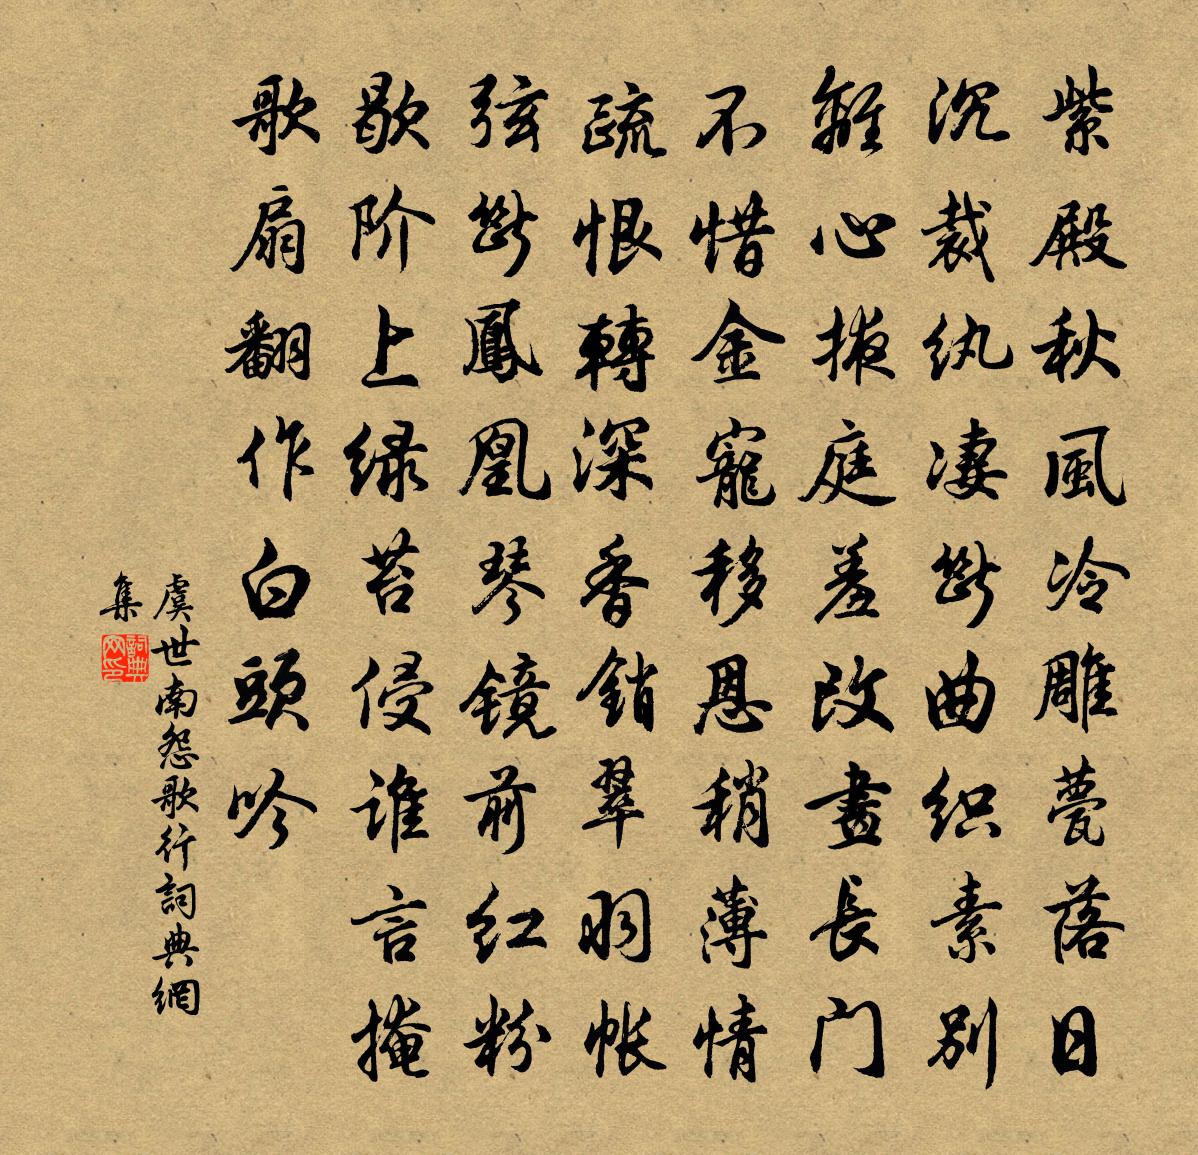 紫殿秋風冷雕甍落日
沉裁紈凄斷曲织素别
離心掖庭羞改畫長门
不惜金寵移恩稍薄情
疏恨轉深香銷翠羽帐
弦斷鳳凰琴镜前红粉
歇阶上绿苔侵谁言掩
歌扇翻作白頭吟
虞世南怨歌行詞典網
集
詞典網印